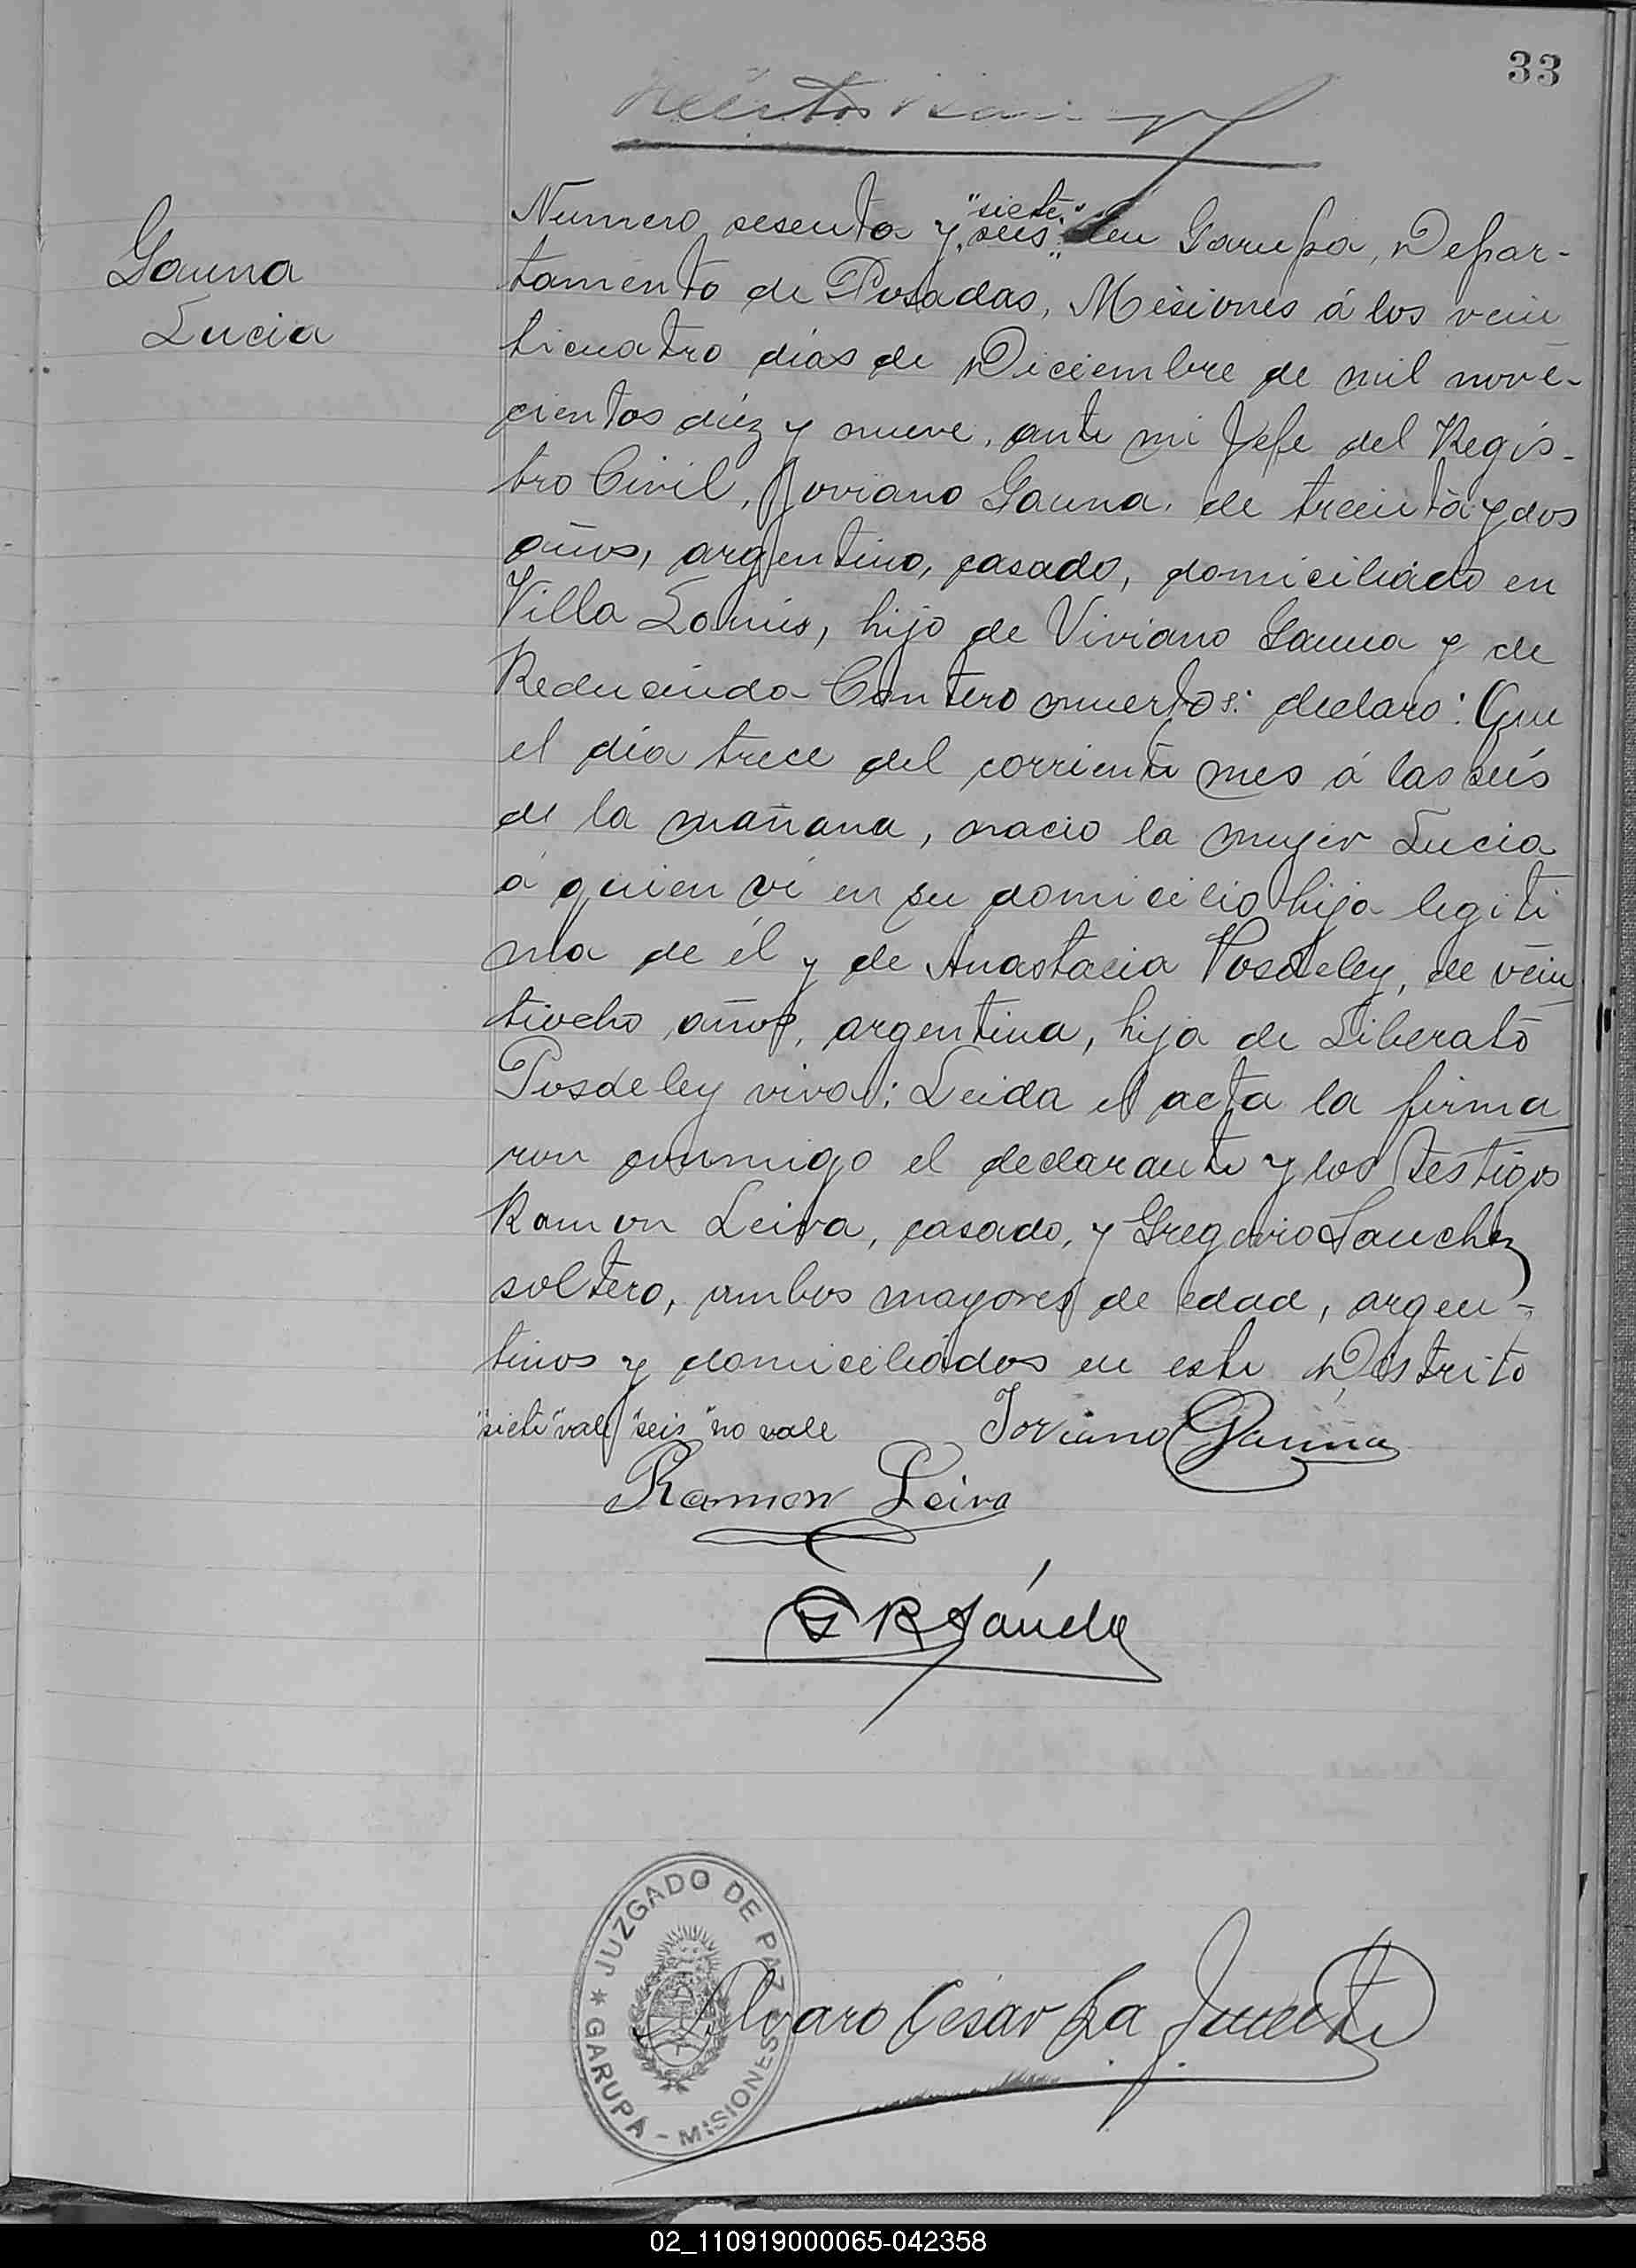 33
Gauna
Lucia
Numero sesenta y "siete" "seis" en Garupa, Depar-
tamento de Posadas, Misiones á los vein
ticuatro dias de Diciembre de mil nove-
cientos diez y nueve, ante mi Jefe del Regis-
tro Civil, Joviano Gauna, de treinta y dos
años, argentino, casado, domiciliado en
Villa Lanús, hijo de Viviano Gauna y de
Reducinda Cantero muertos: declaro: Que
el dia trece del corriente mes á las seis
de la mañana, nacio la mujer Lucia
á quien vi en su domicilio hija legiti
ma de él y de Anastacia Posdeley, de vein
tiocho años, argentina, hija de Liberato
Posdeley viva: Leida el acta la firma
ron conmigo el declarante y los testigos
Ramon Leiva, casado, y Gregorio Sanchez
soltero, ambos mayores de edad, argen-
tinos y domiciliados en este Distrito
"siete" vale "seis" no vale Joviano Gauna
Ramon Leiva
G R Sánchez
JUZGADO DE PAZ
* GARUPÁ - MISIONES
Alvaro Cesar La Fuente
02_110919000065-042358